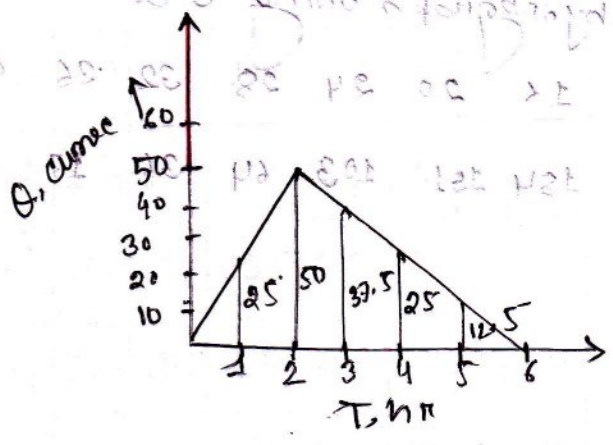 Q, cumec
60
50
40
30
20
10
25
50
37.5
25
12.5
1 2 3 4 5 6
T, hr